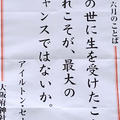 六月のことば
の世に生を受けたこ
れこそが、最大の
ャンスではないか。
アイルトン・セ
大阪府神社